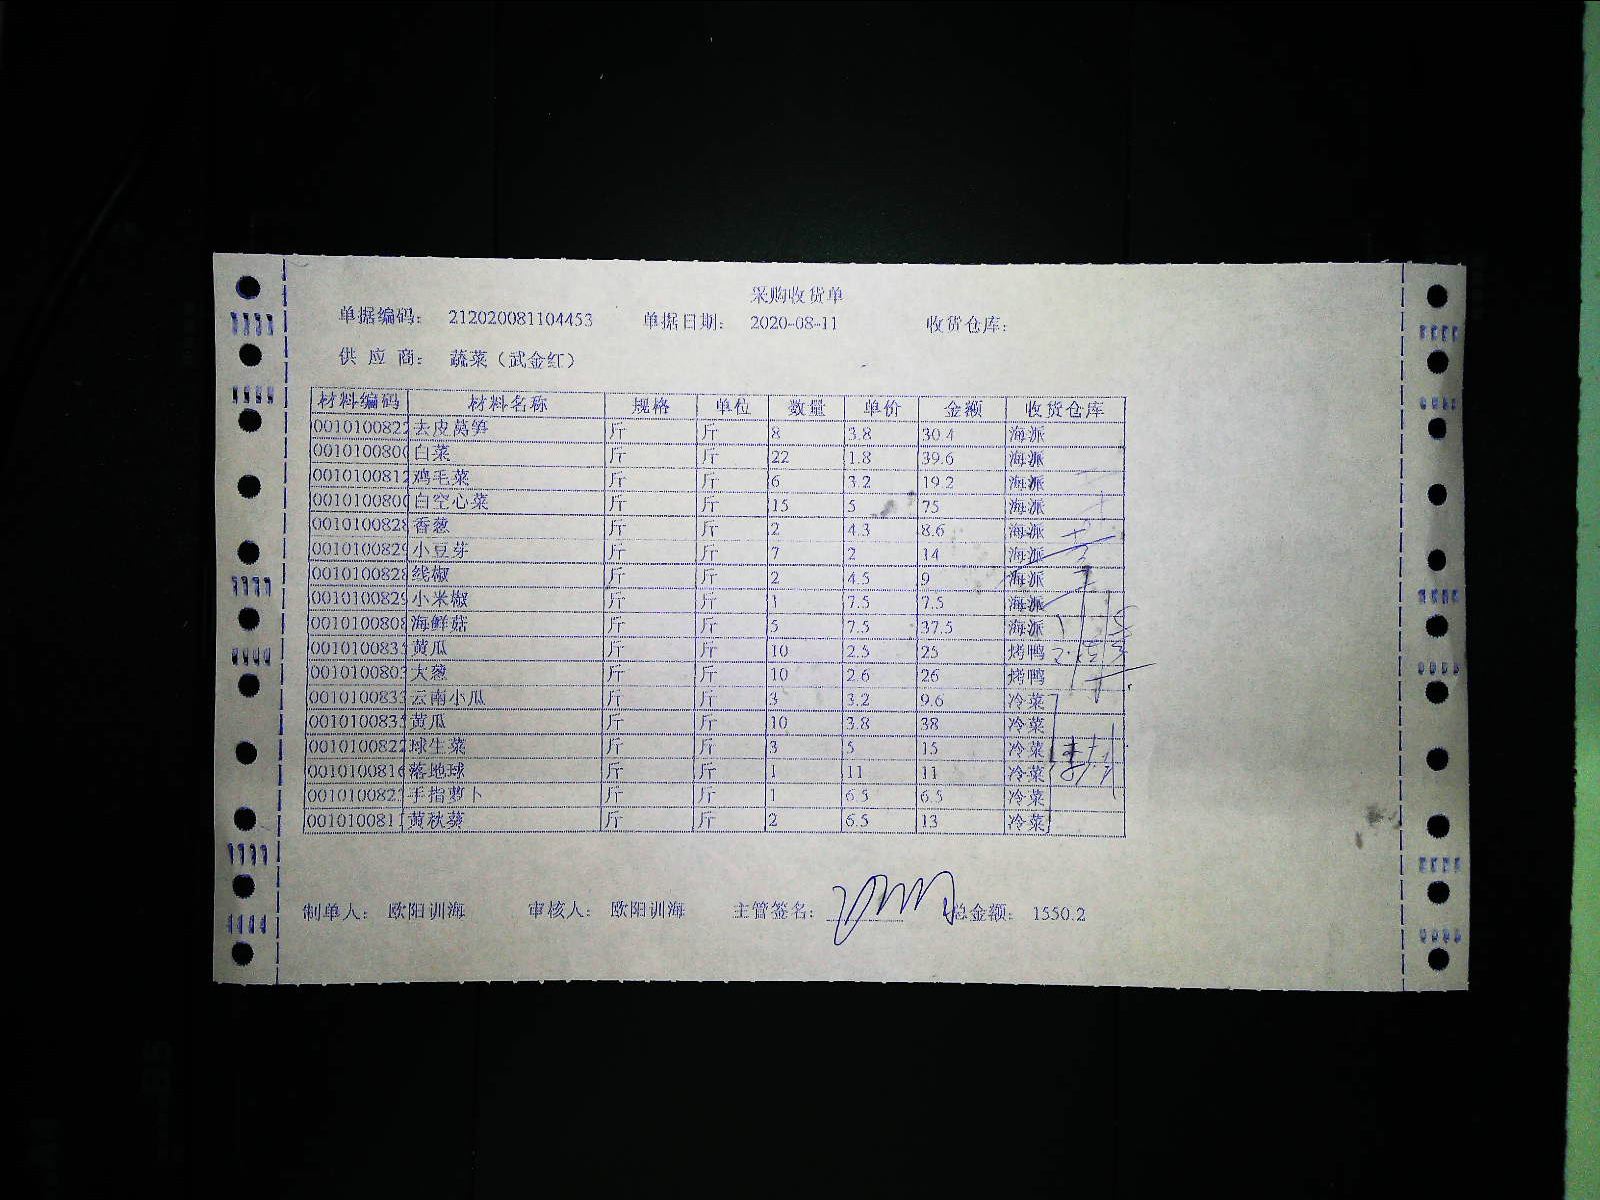 采购收货单
单据编码： 212020081104453 单据日期： 2020-08-11 收货仓库：
供 应 商： 蔬菜（武金红）
材料编码 材料名称 规格 单位 数量 单价 金额 收货仓库
0010100822 去皮莴笋 斤 斤 8 3.8 30.4 海派
001010080 白菜 斤 斤 22 1.8 39.6 海派
001010081 鸡毛菜 斤 斤 6 3.2 19.2 海派
001010080 白空心菜 斤 斤 15 5 75 海派
001010082 香葱 斤 斤 2 4.3 8.6 海派
001010082 小豆芽 斤 斤 7 2 14 海派
001010082 线椒 斤 斤 2 4.5 9 海派
001010082 小米椒 斤 斤 1 7.5 7.5 海派
001010080 海鲜菇 斤 斤 5 7.5 37.5 海派
001010083 黄瓜 斤 斤 10 2.5 25 烤鸭
001010080 大葱 斤 斤 10 2.6 26 烤鸭
001010083 云南小瓜 斤 斤 3 3.2 9.6 冷菜
001010083 黄瓜 斤 斤 10 3.8 38 冷菜
001010082 球生菜 斤 斤 3 5 15 冷菜
001010081 落地球 斤 斤 1 11 11 冷菜
001010082 手指萝卜 斤 斤 1 6.5 6.5 冷菜
001010081 黄秋葵 斤 斤 2 6.5 13 冷菜
制单人： 欧阳训海 审核人： 欧阳训海 主管签名： 总金额： 1550.2